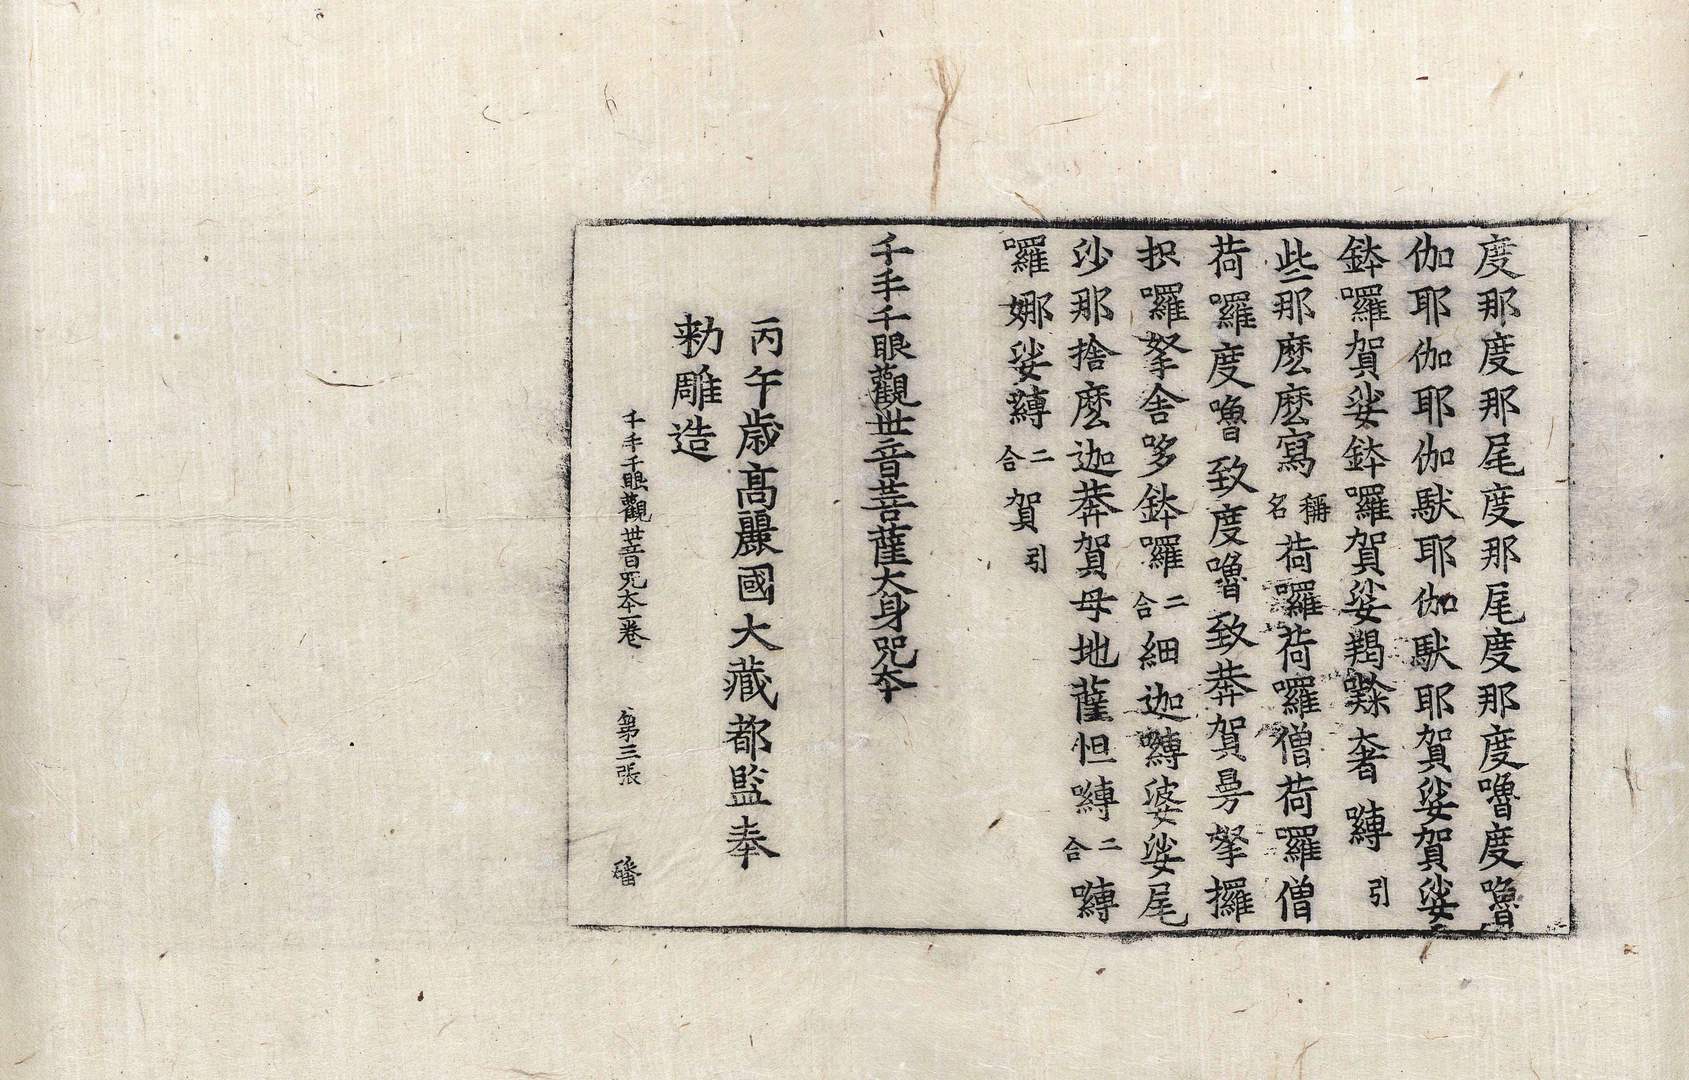 度那度那尾度那尾度那度嚕度嚕
伽耶伽耶伽馱耶伽馱耶賀娑賀娑
鉢囉賀娑鉢囉賀娑羯奢嚩引
些那麽麽寫稱名荷囉荷囉僧荷囉僧
荷囉度嚕致度嚕致莾賀曼拏攞
抧囉拏舍哆鉢囉二合細迦嚩婆娑尾
沙那捨麽迦莾賀母地薩怛嚩二合嚩
囉娜娑嚩二合賀引
千手千眼觀世音菩薩大身咒本
丙午歲高麗國大藏都監奉
勑雕造
千手千眼觀世音咒本一卷 第三張 磻